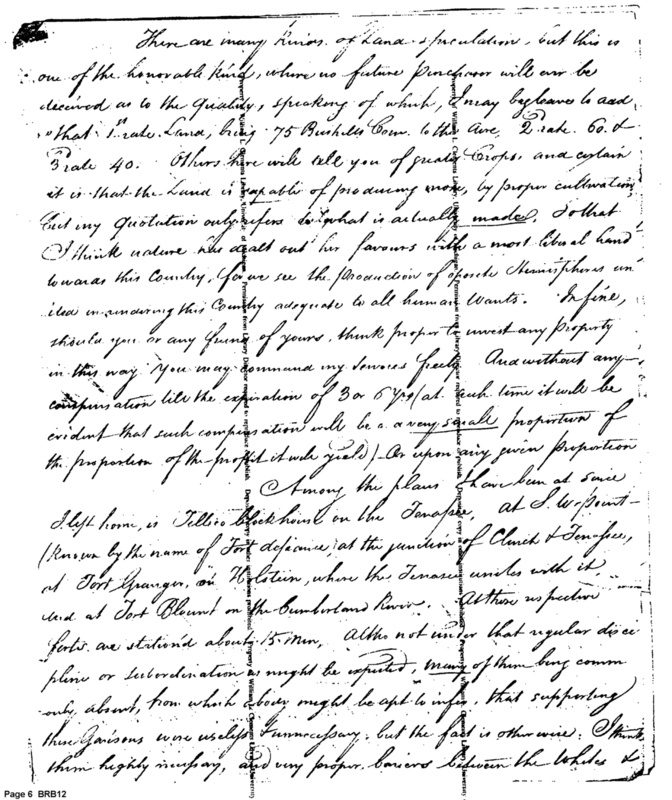 There are many kinds of Land speculation, but this is
one of the honorable kind, where no future Purchaser will ever be
deceived as to the Quality, speaking of which, I may beg leave to add
that 1st rate Land, bring 75 Bushells Corn to the Acre, 2d rate 60 &
3d rate 40. Others here will tell you of greater Crops, and certain
it is that the Land is capable of producing more, by proper cultivation,
but my Quotation only refers to what is actually made. So that
I think nature has dealt out his favours with a most liberal hand
towards this Country, for we see the Production of oposite Hemispheres un
ited in rendering this Country adequate to all human Wants. In fine,
should you or any friend of yours, think proper to invest any Property
in this way You may command my Services freely And without any
compensation till the expiration of 3 or 6 Yrs (at such time it will be
evident that such compensation will be a very small proportion of
the proportion of the profit it will yield) Or upon any given Proportion
Among the places I have been at since
I left home, is Tellico blockhouse on the Tenassee, at S. W. Point
(known by the name of Fort defiance) at the junction of Clinch & Tenassee,
at Fort Granger, on Holstein, where the Tenasee unites with it
and at Fort Blount on the Cumberland River. At these respective
forts are station'd about 15 Men, Altho not under that regular disci
pline or subordination as might be expected, many of them being comm
only absent, from which a body might be apt to infer, that supporting
these Garisons were useless & unnecessary, but the fact is otherwise. I think
them highly necessary, and very proper bariers between the Whites &
Page 6 BRB12